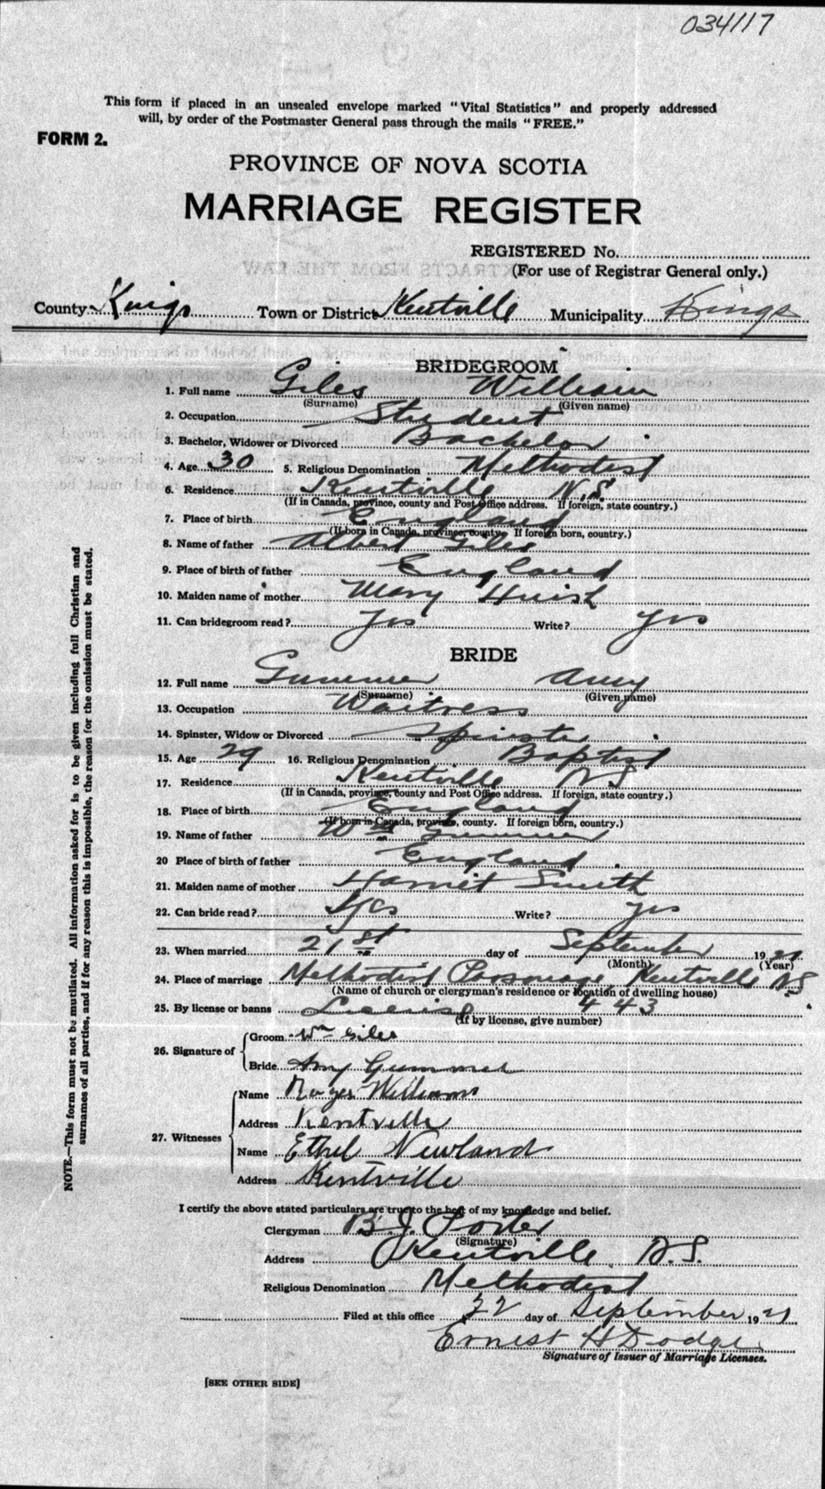 034117
This form if placed in an unsealed envelope marked "Vital Statistics" and properly addressed
will, by order of the Postmaster General pass through the mails "FREE."
FORM 2.
PROVINCE OF NOVA SCOTIA
MARRIAGE REGISTER
REGISTERED No.
(For use of Registrar General only.)
County Kings Town or District Kentville Municipality Kings
BRIDEGROOM
1. Full name Giles William
(Surname) (Given name)
2. Occupation Student
3. Bachelor, Widower or Divorced Bachelor
4. Age 30 5. Religious Denomination Methodist
6. Residence Kentville N.S.
(If in Canada, province, county and Post Office address. If foreign, state country.)
7. Place of birth England
(If born in Canada, province, county. If foreign born, country.)
8. Name of father Albert Giles
9. Place of birth of father England
10. Maiden name of mother Mary Huish
11. Can bridegroom read? Yes Write? yes
BRIDE
12. Full name Gummer Amy
(Surname) (Given name)
13. Occupation Waitress
14. Spinster, Widow or Divorced Spinster
15. Age 29 16. Religious Denomination Baptist
17. Residence Kentville NS
(If in Canada, province, county and Post Office address. If foreign, state country.)
18. Place of birth England
(If born in Canada, province, county. If foreign born, country.)
19. Name of father Wm Gummer
20 Place of birth of father England
21. Maiden name of mother Harriet Smith
22. Can bride read? Yes Write? yes
23. When married 21st day of September 1921
(Month) (Year)
24. Place of marriage Methodist Parsonage Kentville NS
(Name of church or clergyman's residence or location of dwelling house)
25. By license or banns License 443
(If by license, give number)
26. Signature of Groom Wm Giles
Bride Amy Gummer
27. Witnesses
Name Roger Williams
Address Kentville
Name Ethel Newland
Address Kentville
I certify the above stated particulars are true to the best of my knowledge and belief.
Clergyman B.J. Porter
(Signature)
Address Kentville N.S.
Religious Denomination Methodist
Filed at this office 22 day of September 1921
Ernest H Dodge
Signature of Issuer of Marriage Licenses.
[SEE OTHER SIDE]
NOTE.—This form must not be mutilated. All information asked for is to be given including full Christian and
surnames of all parties, and if for any reason this is impossible, the reason for the omission must be stated.